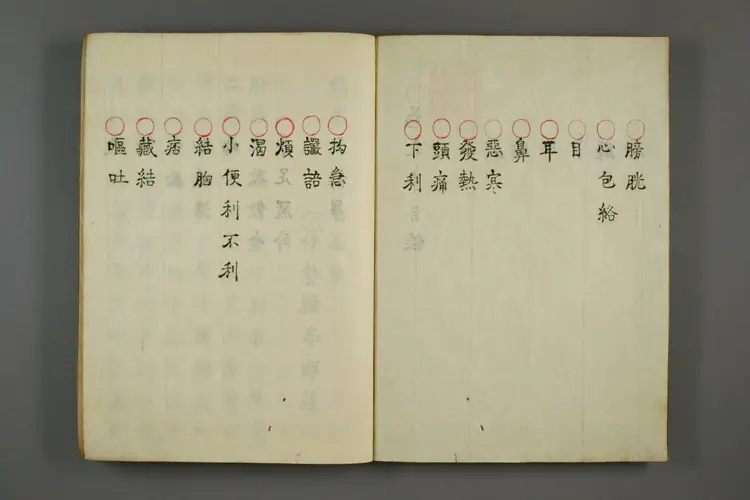 ○膀胱
○心包絡
○目
○耳
○鼻
○惡寒
○發熱
○頭痛
○下利
○拘急
○讝語
○煩
○渴
○小便利不利
○結胸
○痞
○藏結
○嘔吐